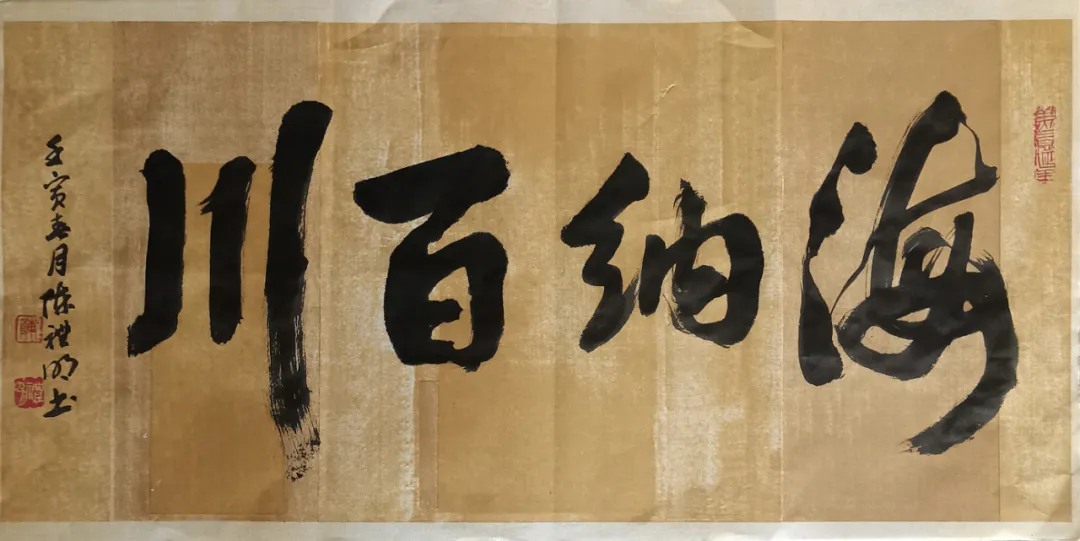 海纳百川
壬寅春月陈礼明书